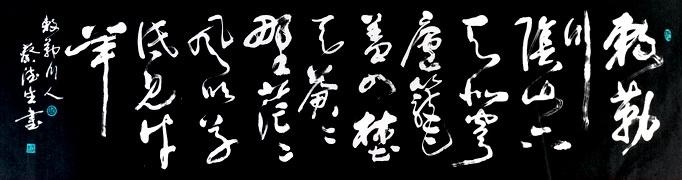 敕勒
川
陰山下
天似穹
廬籠
蓋四埜
天蒼々
野茫々
風吹草
低見牛
羊
敕勒川人
蔡生書